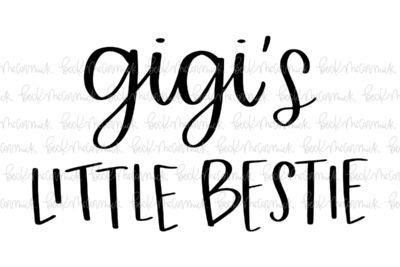 gigi's
LITTLE BESTIE